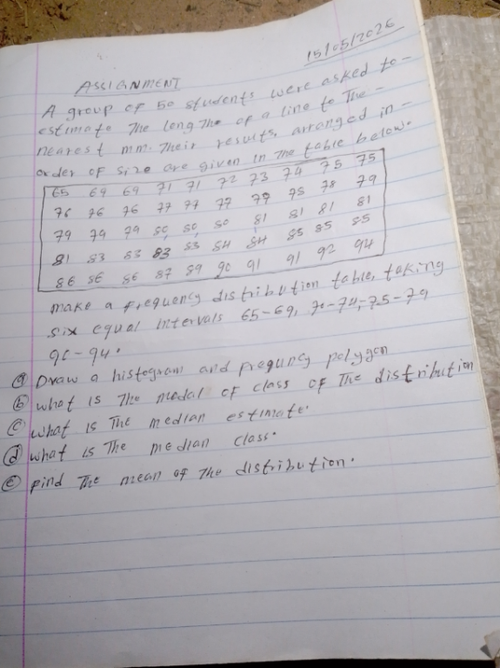 15/05/2026
ASSIGNMENT
A group of 50 students were asked to-
estimate the longthe of a line to the-
nearest mm. Their results, arranged in-
order of size are given in the table below.
65 69 69 71 71 72 73 74 75 75
76 76 76 77 77 77 77 78 78 79
79 79 79 80 80 80 81 81 81 81
81 83 83 83 83 84 84 85 85 85
86 86 86 87 89 90 91 91 92 94
make a frequency distribution table, taking
six equal intervals 65-69, 70-74, 75-79
90-94.
(a) Draw a histogram and frequncy polygon
(b) what is the modal of class of the distribution
(c) what is the median estimate.
(d) what is the median class.
(e) find the mean of the distribution.